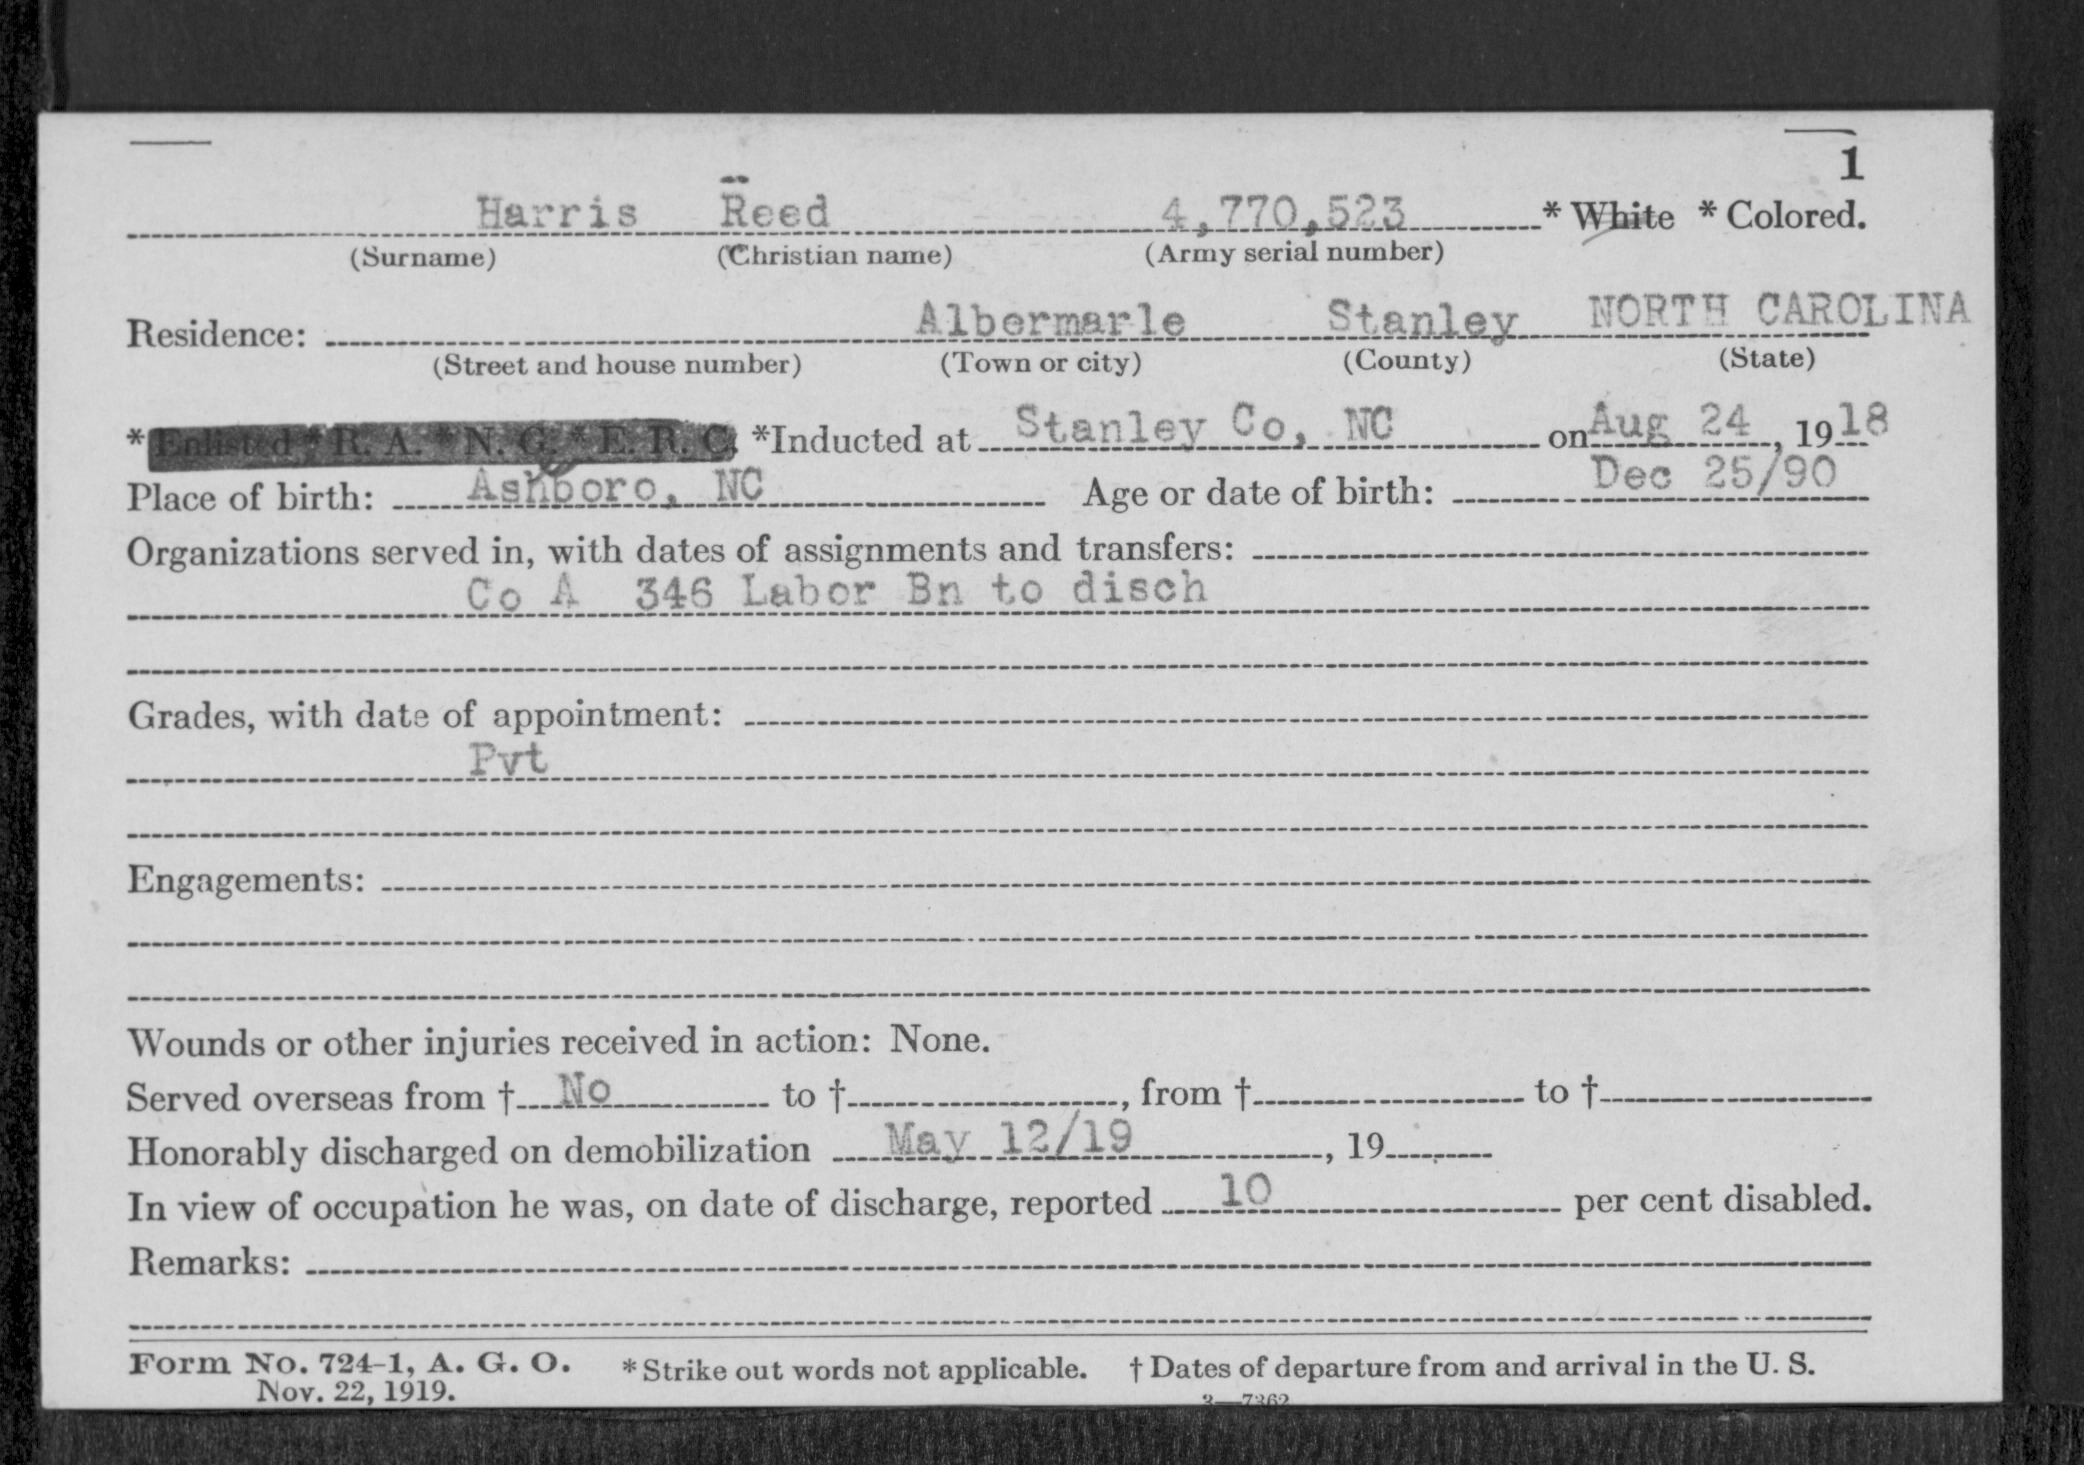 1
Harris Reed 4,770,523 * White * Colored.
(Surname) (Christian name) (Army serial number)
Residence: Albermarle Stanley NORTH CAROLINA
(Street and house number) (Town or city) (County) (State)
* Enlisted * R. A. * N. G. * E. R. C. *Inducted at Stanley Co, NC on Aug 24, 1918
Place of birth: Ashboro, NC Age or date of birth: Dec 25/90
Organizations served in, with dates of assignments and transfers:
Co A 346 Labor Bn to disch
Grades, with date of appointment:
Pvt
Engagements:
Wounds or other injuries received in action: None.
Served overseas from † No to †, from † to †
Honorably discharged on demobilization May 12/19, 19
In view of occupation he was, on date of discharge, reported 10 per cent disabled.
Remarks:
Form No. 724-1, A. G. O. * Strike out words not applicable. † Dates of departure from and arrival in the U. S.
Nov. 22, 1919. 3—7362